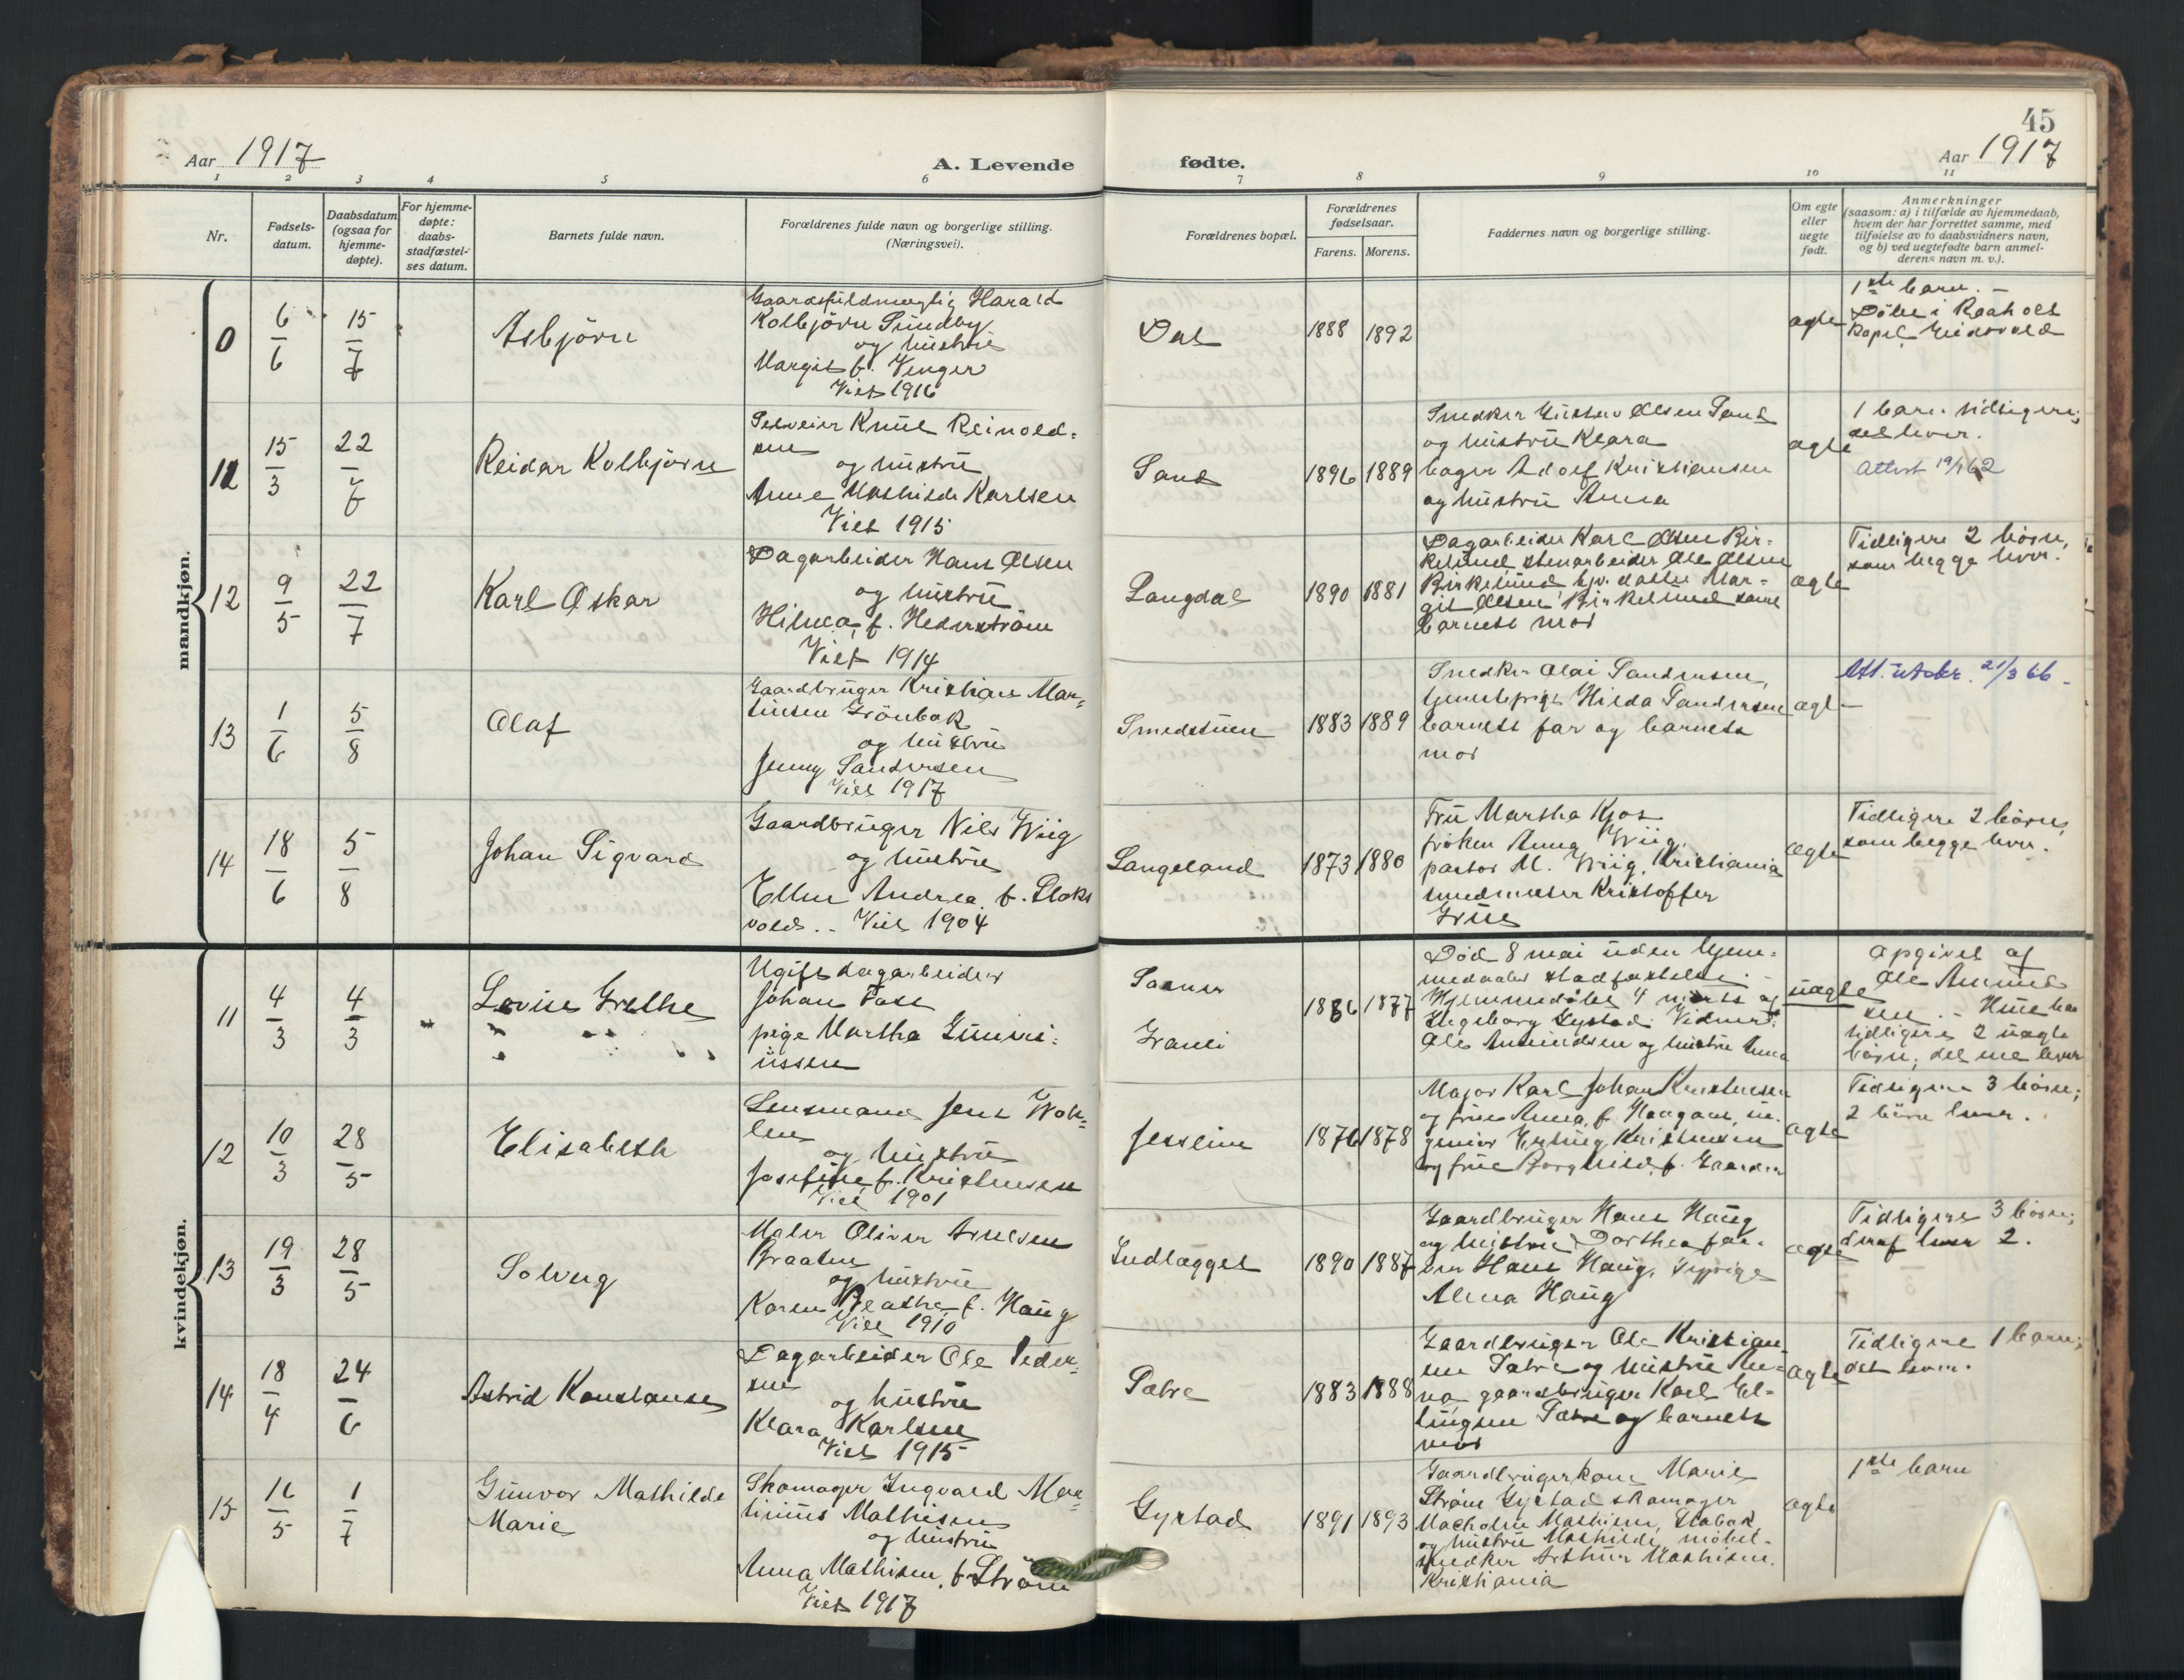 45
Aar 1917
A. Levende
fødte.
Aar 1917
1 2 3 4 5 6 7 8 9 10 11
Nr.
Fødsels-
datum.
Daabsdatum
(ogsaa for
hjemme-
døpte).
For hjemme-
døpte:
daabs-
stadfæstel-
ses datum.
Barnets fulde navn.
Forældrenes fulde navn og borgerlige stilling.
(Næringsvei).
Forældrenes bopæl.
Forældrenes
fødselsaar.
Farens. Morens.
Faddernes navn og borgerlige stilling.
Om egte
eller
uegte
født.
Anmerkninger
(saasom: a) i tilfælde av hjemmedaab,
hvem der har forrettet samme, med
tilføielse av to daabsvidners navn,
og b) ved uegtefødte barn anmel-
derens navn m. v.).
mandkjøn.
0
6/6
15/7
Asbjørn
Gaardsfuldmægtig Harald
Kolbjørn Sundby
og hustru
Margit f. Venger
Viet 1916
Dal
1888 1892
ægte
1ste barn. -
Døbt i Raaholt
Kapel Eidsvold
11
15/3
22/7
Reidar Kolbjørn
Selveier Knut Reinold-
sen
og hustru
Anne Mathilde Karlsen
Viet 1915
Sand
1896 1889
Snedker Gustav Olsen Sand
og hustru Klara
bager Adolf Kristiansen
og hustru Anna
ægte
1 barn tidligere;
det lever.
Attest 19/1 62
12
9/5
22/7
Karl Oskar
Dagarbeider Hans Olsen
og hustru
Hilma f. Hederström
Viet 1914
Langdal
1890 1881
Dagarbeider Karl Olsen Bir-
kelund stenarbeider Ole Olsen
Birkelund, hjv. datter Mar-
git Olsen Birkelund samt
barnets mor
ægte
Tidligere 2 børn,
som begge lever.
13
1/6
5/8
Olaf
Gaardbruger Kristian Mar-
tinsen Grönbak
og hustru
Jenny Sandersen
Viet 1917
Smedstuen
1883 1889
Snedker Olai Sandersen,
tjenestepige Hilda Sandersen
barnets far og barnets
mor
ægt-
Att. utstr. 21/3 66.
14
18/6
5/8
Johan Sigvard
Gaardbruger Nils Wiig
og hustru
Ellen Andrea f. Stoks
vold. - Viet 1904
Langeland
1873 1880
Fru Martha Kjos
frøken Anna Wiig,
pastor M. Wiig, Kristiania
smedmester Kristoffer
Grue
ægte
Tidligere 2 børn,
som begge lever.
kvindekjøn.
11
4/3
4/3
Lovise Grethe
Ugift dagarbeider
Johan Foss
pige Martha Gunni-
ussen
Sanner
Granli
1886 1877
Død 8 mai uden hjem-
medaabs stadfæstelse. -
Hjemmedøbt 4 marts af
Ingeborg Gystad. Vidner:
Ole Amundsen og hustru Anna
uægte
Opgivet af
Ole Amund
sen. - Hun har
tidligere 2 uægte
børn; det ene lever
12
10/3
28/5
Elisabeth
Lensmand Jens Woh-
len
og hustru
Josefine f. Kristensen
Viet 1901
Jessheim
1876 1878
Major Karl Johan Kristensen
og frue Anna f. Haagaas, in-
geniør Erling Kristensen
og frue Borghild f. Gaarder
ægte
Tidligere 3 børn;
2 børn lever.
13
19/3
28/5
Solveig
Maler Oliver Arnesen
Braaten
og hustru
Karen Beathe f. Haug
Viet 1910
Indlægget
1890 1887
Gaardbruger Hans Haug
og hustru Dorthea far-
bror Hans Haug, sypige
Alma Haug
ægte
Tidligere 3 børn;
deraf lever 2.
14
18/4
24/6
Astrid Konstanse
Dagarbeider Ole Peder-
sen
og hustru
Klara Karlsen
Viet 1915
Sætre
1883 1888
Gaardbruger Ole Kristian-
sen Sætre og hustru An-
na, gaardbruger Karl El-
lingsen Sætre og barnets
mor
ægte
Tidligere 1 barn;
det lever.
15
16/5
1/7
Gunvor Mathilde
Marie
Skomager Ingvald Mar-
tinius Mathisen
og hustru
Anna Mathisen, f. Strøm
Viet 1917
Gystad
1891 1893
Gaardbrugerkone Marie
Strøm Gystad skomager
Macholm Mathisen, Stabæk
og hustru Mathilde, møbel-
snedker Arthur Mathisen,
Kristiania
ægte
1ste barn